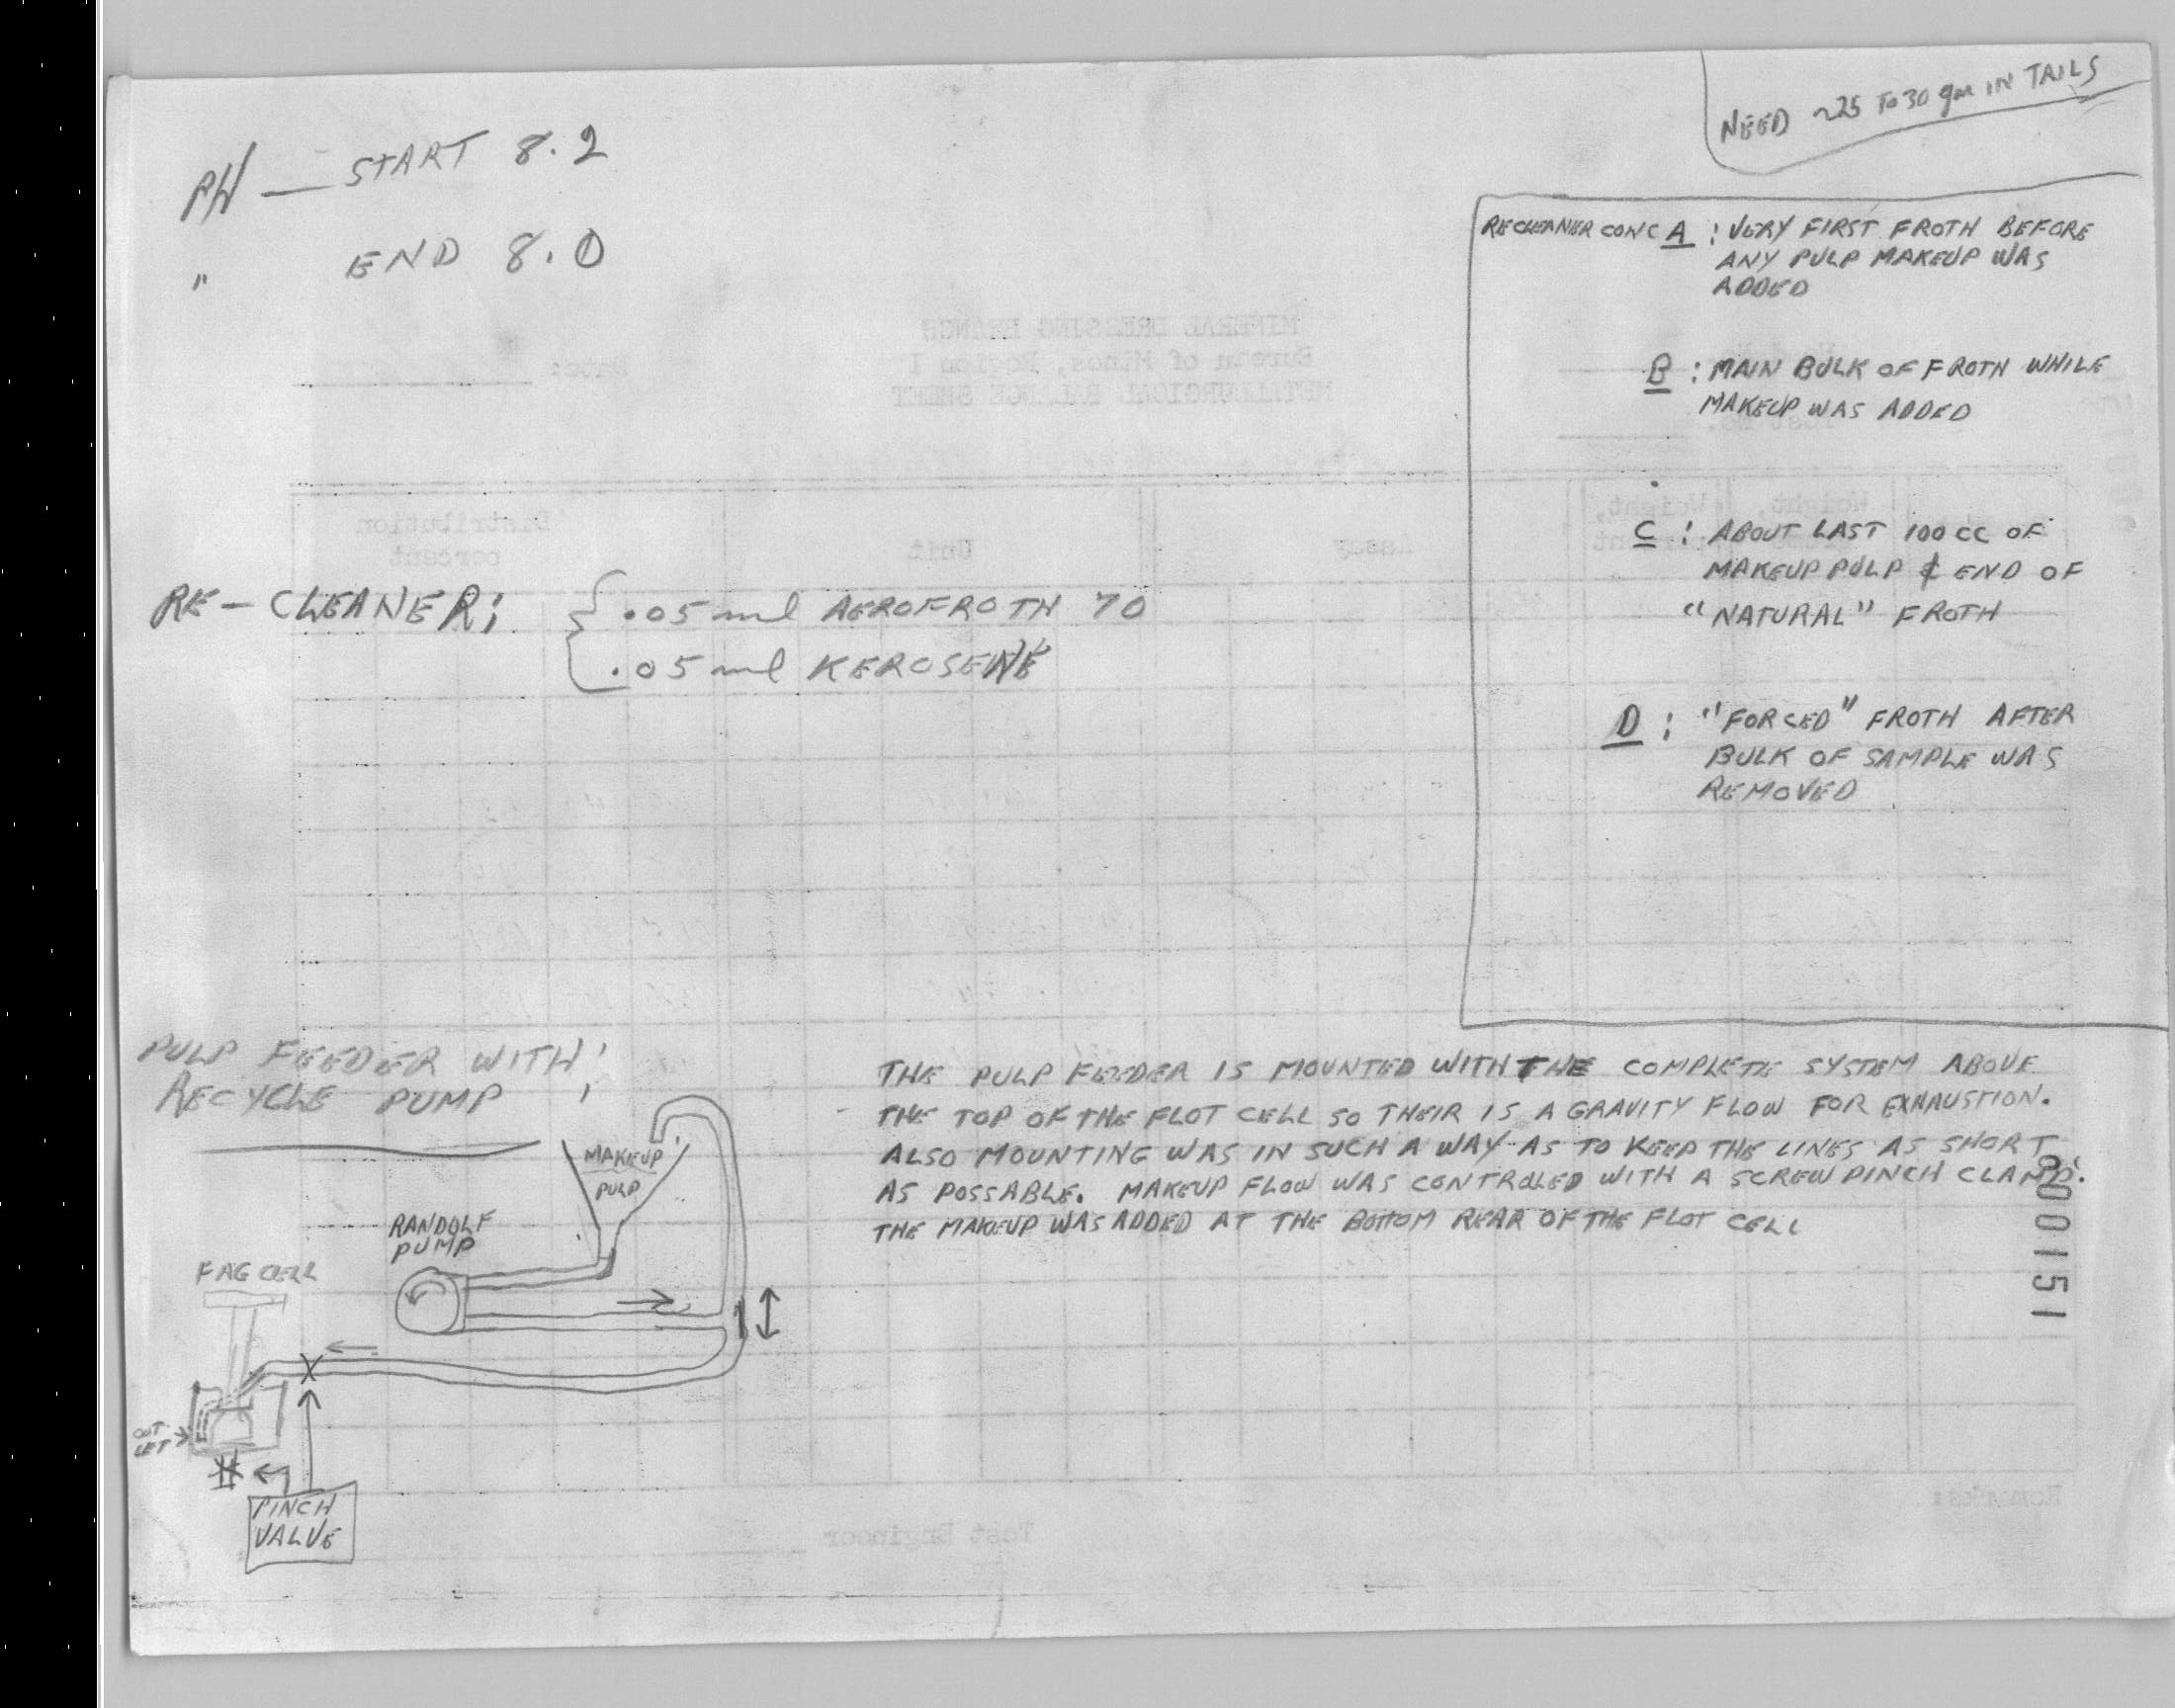 NEED ~25 TO 30 gm IN TAILS
PH — START 8.2
" END 8.0
RECLEANER CONC A : VERY FIRST FROTH BEFORE
ANY PULP MAKEUP WAS
ADDED
B : MAIN BULK OF FROTH WHILE
MAKEUP WAS ADDED
C : ABOUT LAST 100 CC OF
MAKEUP PULP & END OF
"NATURAL" FROTH
D : "FORCED" FROTH AFTER
BULK OF SAMPLE WAS
REMOVED
MINERAL DRESSING BRANCH
Bureau of Mines, Region I
METALLURGICAL BALANCE SHEET
Date:
Test No.
Weight,
Weight,
Assay
Unit
Distribution
percent
RE-CLEANER: { .05 ml AEROFROTH 70
.05 ml KEROSENE
PULP FEEDER WITH:
RECYCLE PUMP
THE PULP FEEDER IS MOUNTED WITH THE COMPLETE SYSTEM ABOVE
THE TOP OF THE FLOT CELL SO THEIR IS A GRAVITY FLOW FOR EXHAUSTION.
ALSO MOUNTING WAS IN SUCH A WAY AS TO KEEP THE LINES AS SHORT
AS POSSABLE. MAKEUP FLOW WAS CONTROLED WITH A SCREW PINCH CLAMP.
THE MAKEUP WAS ADDED AT THE BOTTOM REAR OF THE FLOT CELL
MAKEUP
PULP
RANDOLF
PUMP
FAG CELL
OUT
LET
PINCH
VALVE
000151
Remarks:
Test Engineer